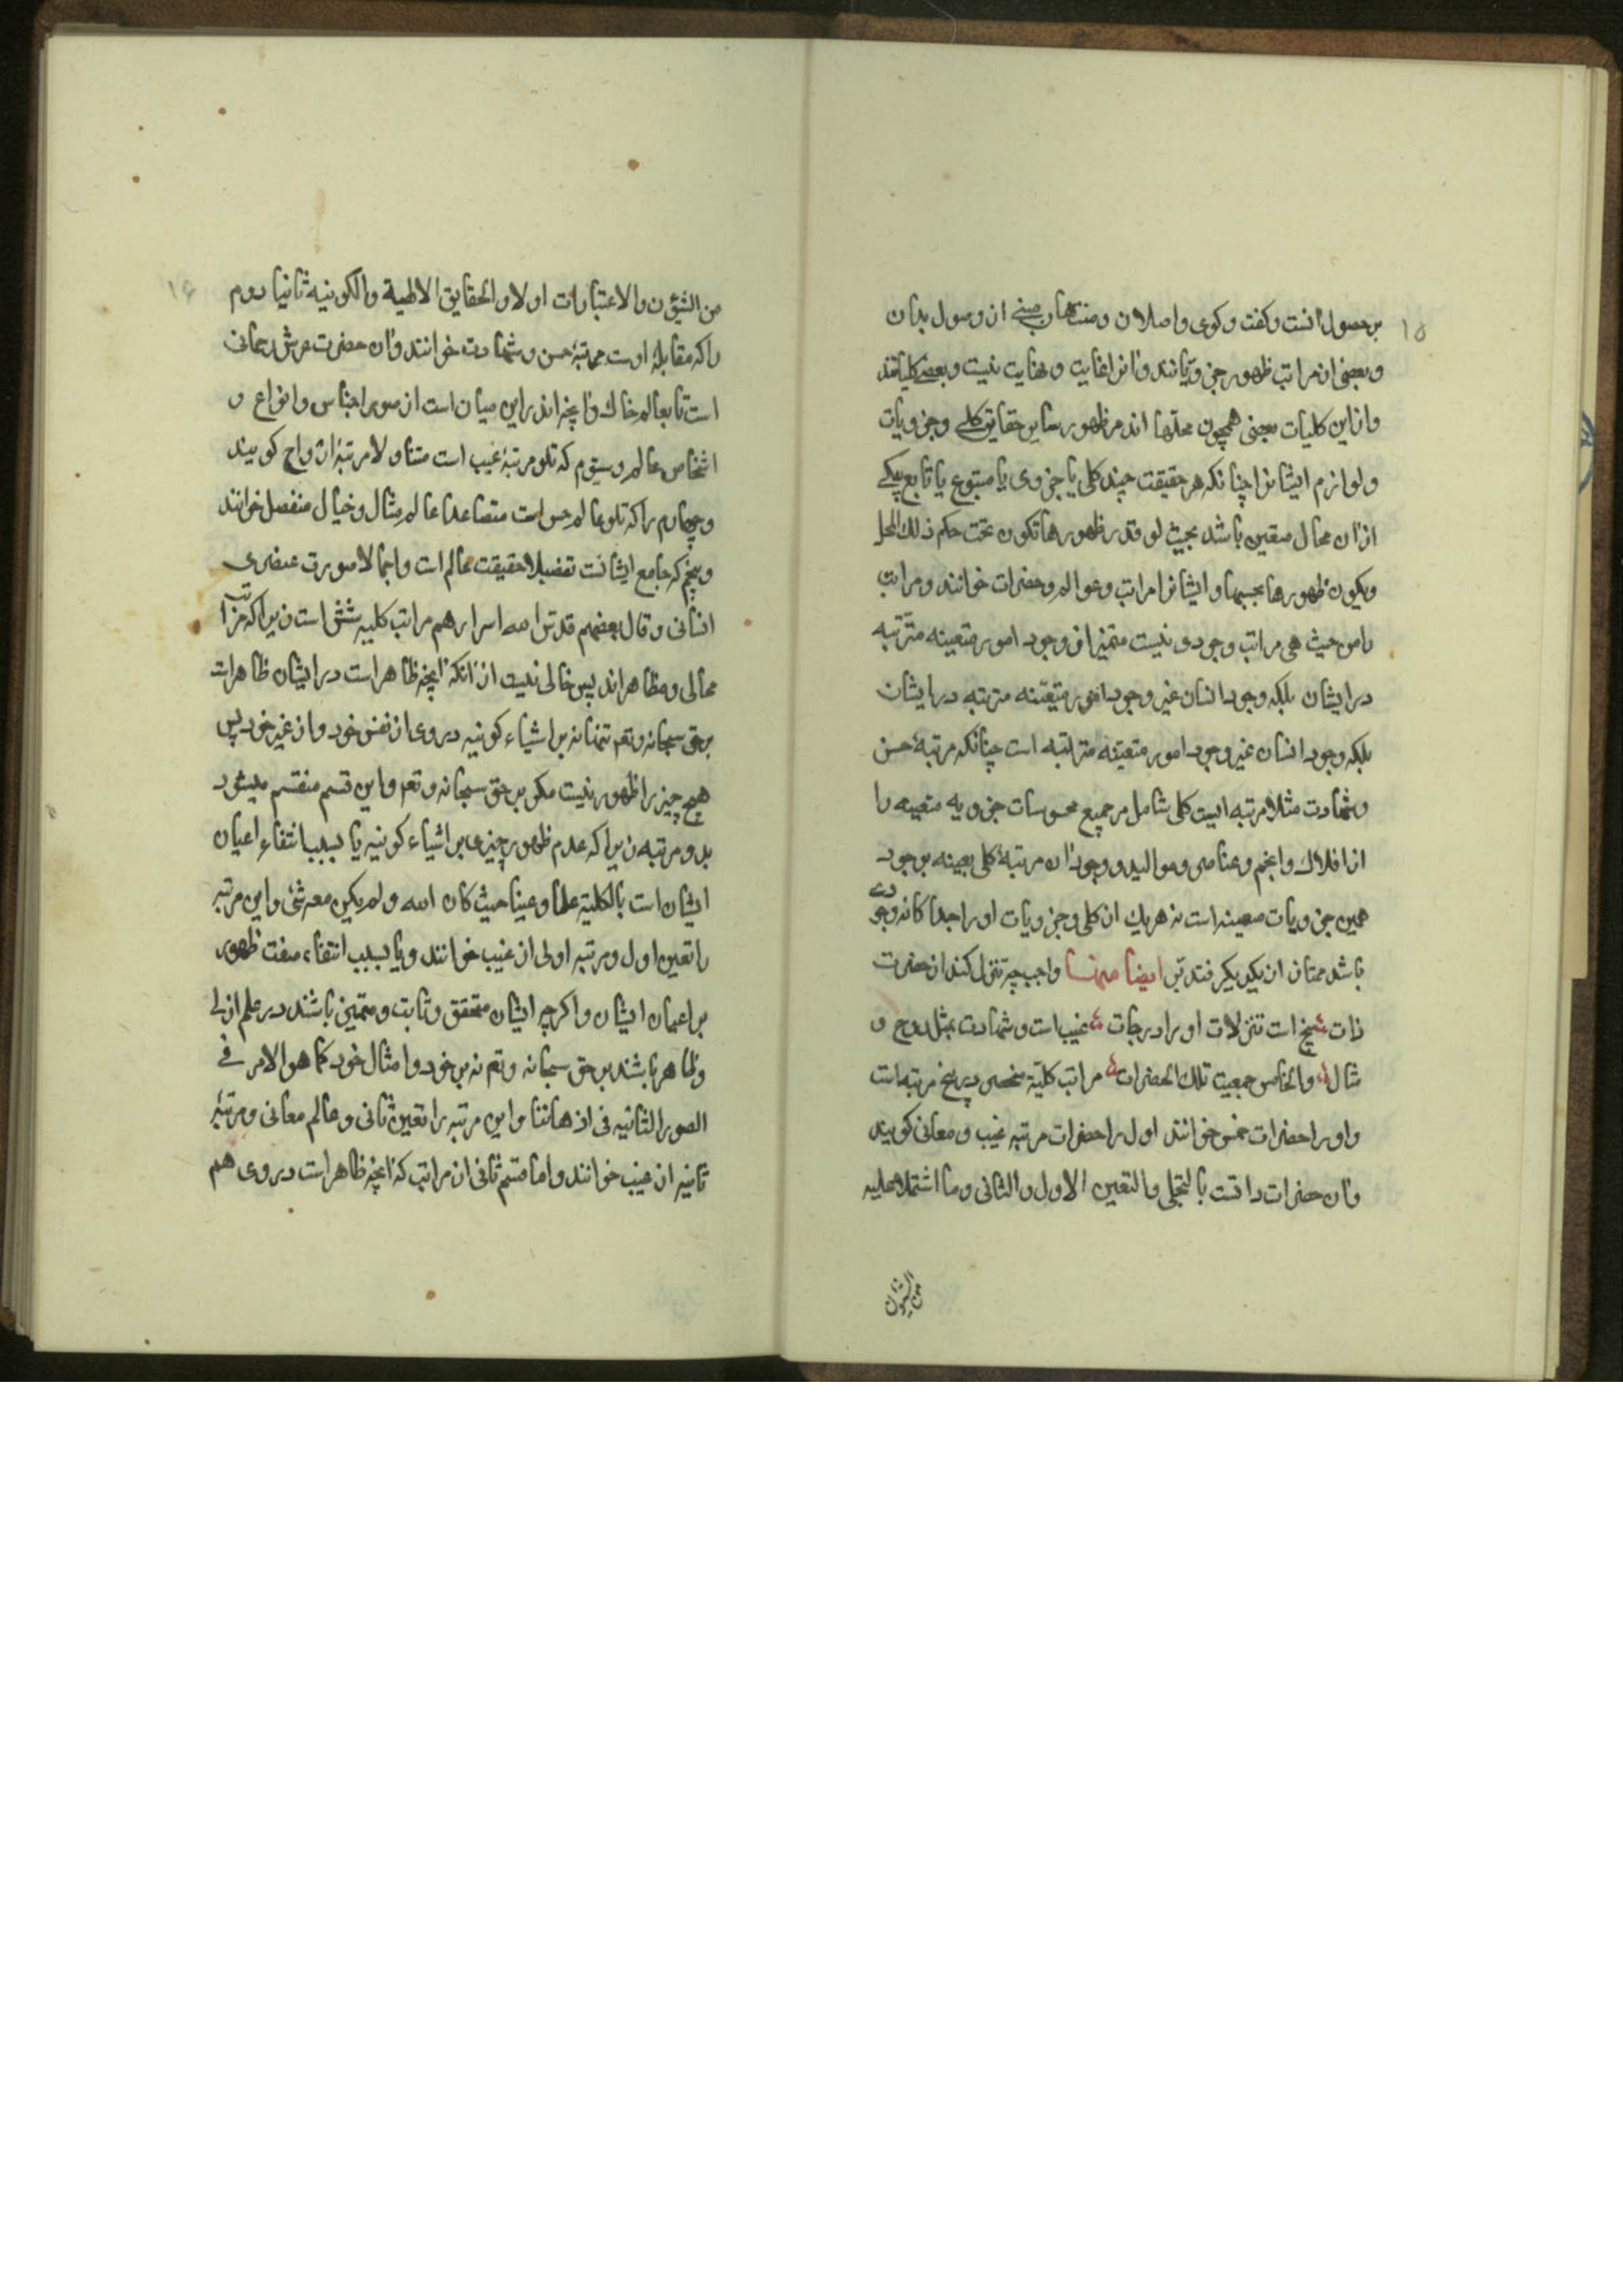 ۱۵
بر حصول آنست وگفت وگوی واصلان ومنتهیان مبنی از وصول بدان
وبعضی از مراتب ظهور جزویاتند وآنرا غایت ونهایت نیست وبعضی کلیاتند
وازاین کلیات بعضی همچون محلها اند مر ظهور سایر حقایق کلی وجزویات
ولوازم ایشانرا چنانکه هر حقیقت چند کلی یا جزوی یا متبوع یا تابع بیکی
ازان محال متعین باشد بحیث لو قدر ظهورها تکون تحت حکم ذلک المحل
ویکون ظهورها بحسبها وایشانرا مراتب وعوالم وحضرات خوانند ومراتب
را من حیث هی مراتب وجودی نیست متمیز از وجود امور متعینه مترتبه
در ایشان بلکه وجود انسان غیر وجود امور متعینه مترتبه در ایشان
بلکه وجود انسان غیر وجود امور متعینه مترتبه است چنانکه مرتبهٔ حس
وشهادت مثلا مرتبه ایست کلی شامل مر جمیع محسوسات جزویه متعینه را
از افلاک وانجم وعناصر وموالید ووجود آن مرتبهٔ کلی بعینه بوجود
همین جزویات معینه است نه هریک از کلی وجزویات او را جداگانه وجودی
باشد ممتاز از یکدیگر فتدبر ایضا منها واجب چه تنزل کند از حضرت
ذات پنج است تنزلات او را درجات غیب است وشهادت بمثل روح و
مثال والخامس جمعیت تلک الحضرات مراتب کلیة منحصر در پنج مرتبه است
واو را حضرات خمس خوانند اول را حضرات مرتبه غیب ومعانی گویند
وآن حضرات ذاتست بالتجلی والتعین الاول والثانی وما اشتملا علیه
من الشئون
۱۶
من الشئون والاعتبارات اولا والحقایق الالهیة والکونیه ثانیا دوم
را که مقابلهٔ اوست مرتبهٔ حس وشهادت خوانند وآن حضرت عرش رحمانی
است تا بعالم خاک وآنچه اندر این میان است از صور اجناس وانواع و
اشخاص عالم وسیوم که تلو مرتبهٔ غیب است متنازلا مرتبهٔ ارواح گویند
وچهارم را که تلو عالم حس است متصاعدا عالم مثال وخیال منفصل خوانند
وپنجم که جامع ایشانست تفصیلا حقیقت عالم است واجمالا صورت عنصری
انسانی وقال بعضهم قدس الله اسرارهم مراتب کلیه شش است زیرا که مراتب
مجالی ومظاهر اند پس خالی نیست از آنکه آنچه ظاهر است در ایشان ظاهر است
بر حق سبحانه وتعم تنها نه بر اشیاء کونیه در وی از نفس خود واز غیر خود پس
هیچ چیز را ظهور نیست مگر بر حق سبحانه وتعم واین قسم منقسم میشود
بدو مرتبه زیرا که عدم ظهور چیزی بر اشیاء کونیه یا بسبب انتفاء اعیان
ایشان است بالکلیة علما وعینا حیث کان الله ولم یکن معه شئ واین مرتبه
را تعین اول ومرتبه اولی از غیب خوانند ویا بسبب انتفاء صفت ظهور
بر اعیان ایشان واگرچه ایشان متحقق وثابت ومتمیز باشند در علم ازلی
وظاهر باشند بر حق سبحانه وتعم نه بر خود وامثال خود کما هو الامر فی
الصور الثابتیه فی اذهاننا واین مرتبه را تعین ثانی وعالم معانی ومرتبهٔ
ثانیه از غیب خوانند واما قسم ثانی از مراتب که آنچه ظاهر است در وی هم